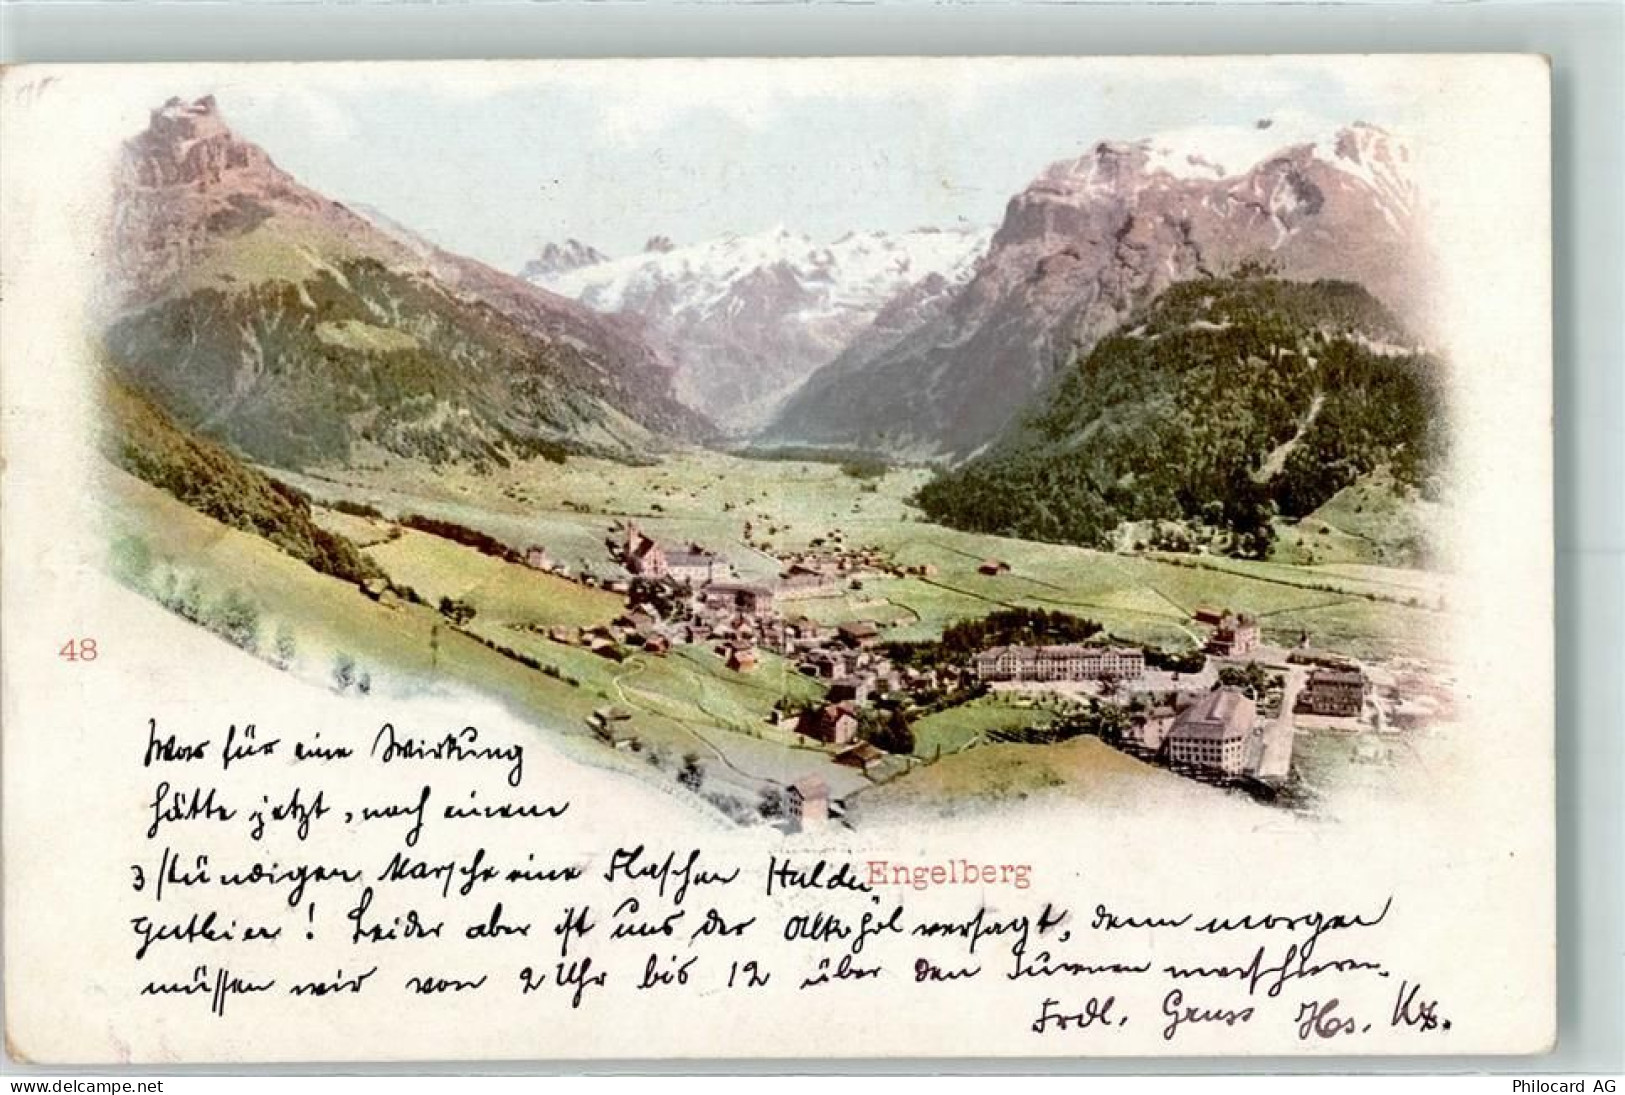 48
Was für eine Wirkung
hätte jetzt, nach einem
3stündigen Marsche eine Flaschen Halden
Engelberg
gutbier! Leider aber ist uns der Alkohol versagt, denn morgen
müssen wir von 2 Uhr bis 12 über den Surenen marschieren.
Frdl. Gruss Hs.
delcampe.net
Philocard AG